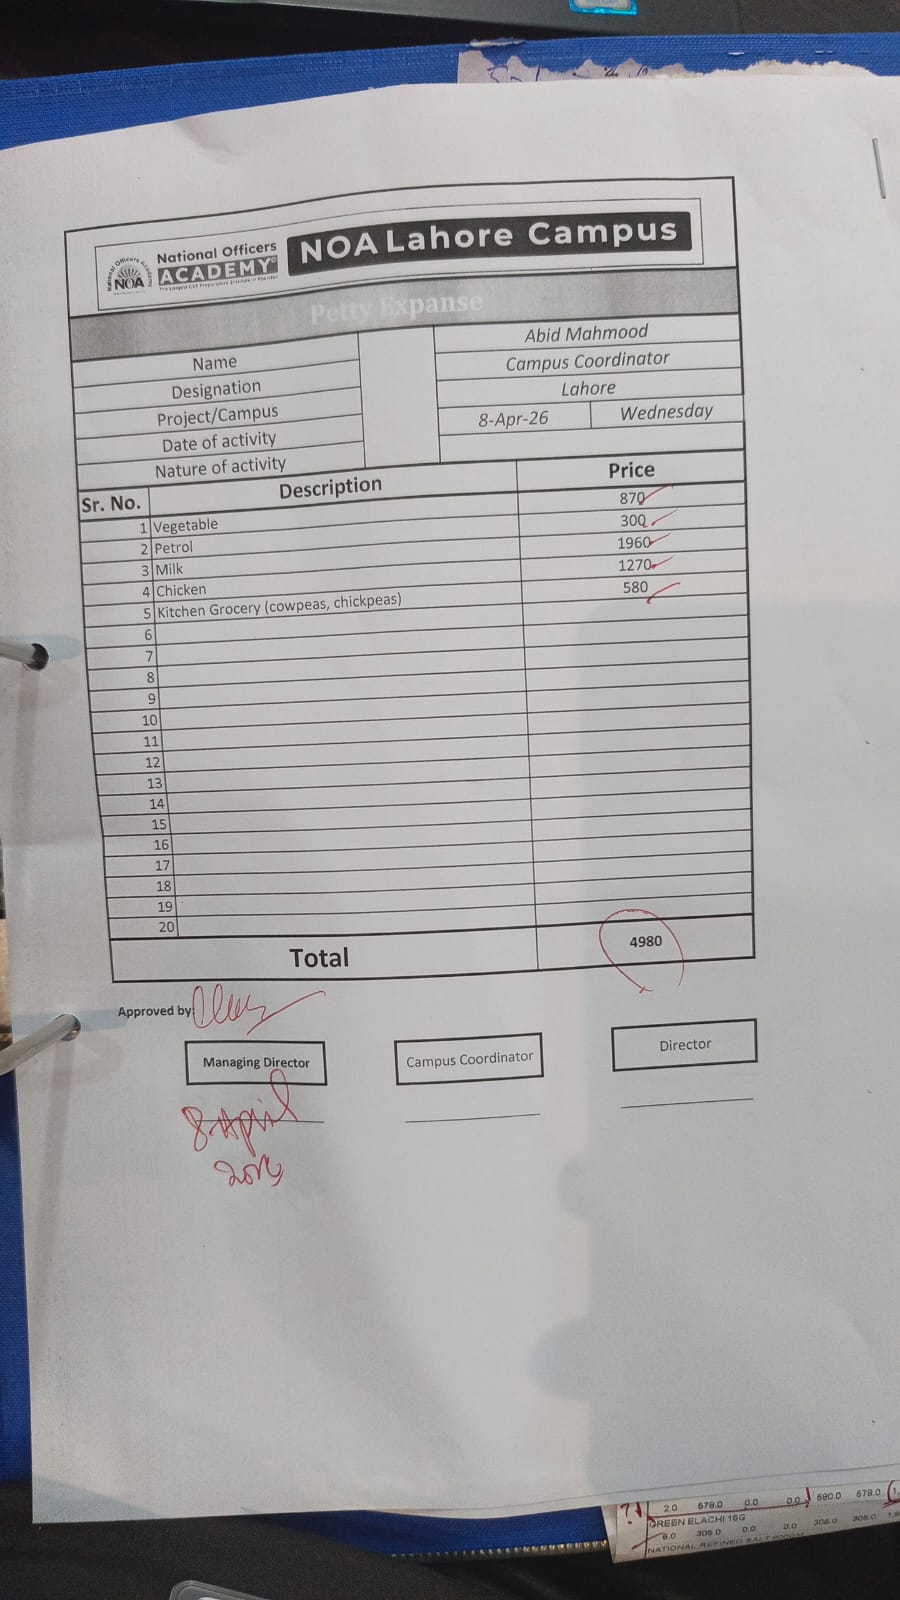 National Officers
ACADEMY
NOA
NOA Lahore Campus
Petty Expanse
Name Abid Mahmood
Designation Campus Coordinator
Project/Campus Lahore
Date of activity 8-Apr-26 Wednesday
Nature of activity
Sr. No. Description Price
1 Vegetable 870
2 Petrol 300
3 Milk 1960
4 Chicken 1270
5 Kitchen Grocery (cowpeas, chickpeas) 580
6
7
8
9
10
11
12
13
14
15
16
17
18
19
20
Total 4980
Approved by:
Managing Director Campus Coordinator Director
8 April
2.0 678.0 0.0 0.0 680.0 678.0
GREEN ELACHI 15G
6.0 306.0 0.0 0.0 306.0 306.0
NATIONAL REFINED SALT